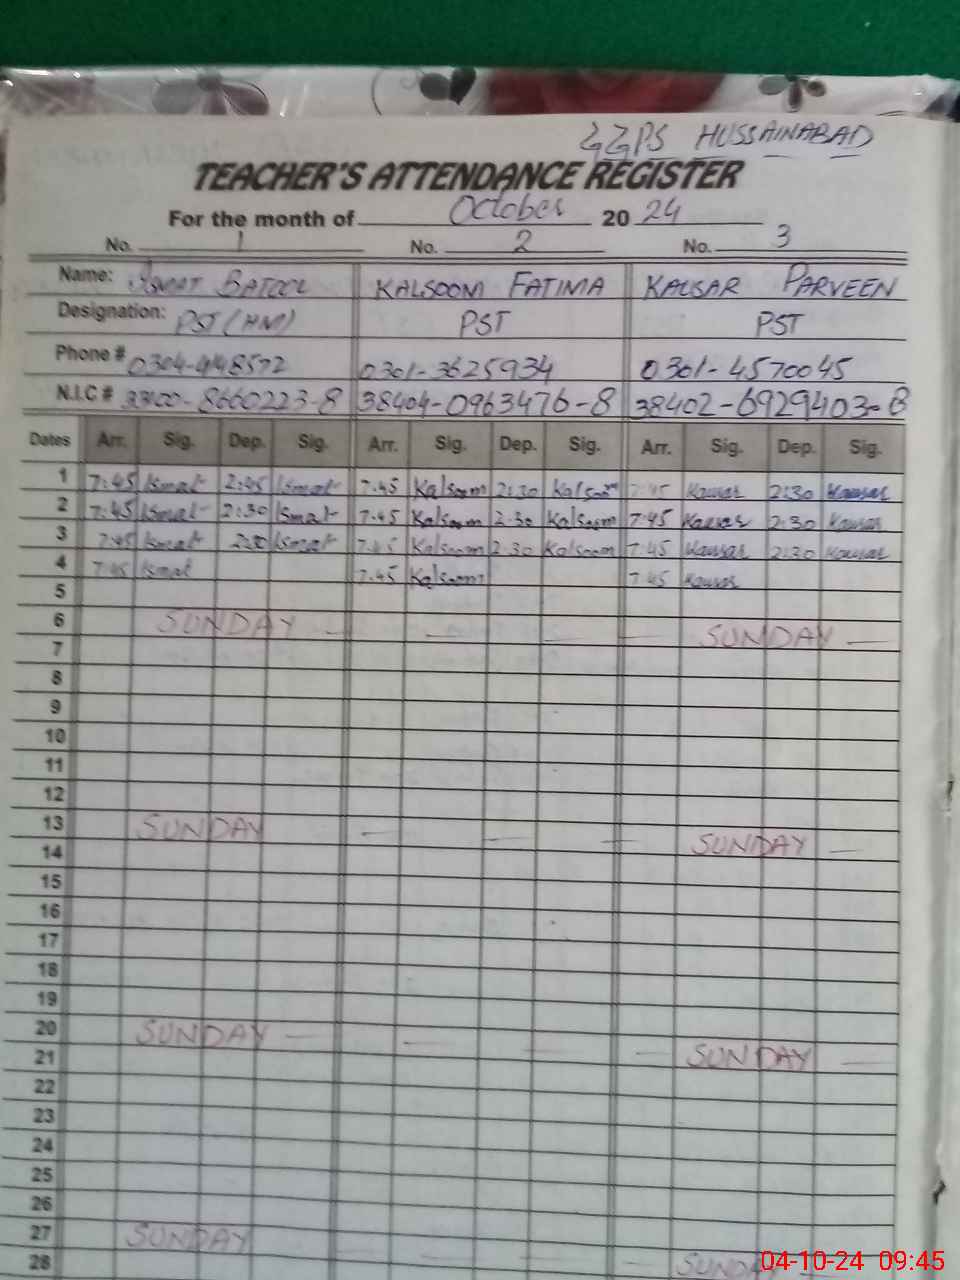 GGPS HUSSAINABAD
TEACHER'S ATTENDANCE REGISTER
For the month of October 20 24
No. 1 No. 2 No. 3
Name: Ismat BATOOL KALSOOM FATIMA KAUSAR PARVEEN
Designation: PST (HM) PST PST
Phone # 0301-3625934 0301-4570045
N.I.C # 33100-8660223-8 38404-0963476-8 38402-6929403-8
Dates Arr. Sig. Dep. Sig. Arr. Sig. Dep. Sig. Arr. Sig. Dep. Sig.
1 7:45 Ismat 2:45 Ismat 7.45 Kalsoom 2:30 Kalsoom 7:45 Kausar 2:30 Kausar
2 7:45 Ismat 2:30 Ismat 7.45 Kalsoom 2:30 Kalsoom 7:45 Kausar 2:30 Kausar
3 7:45 Ismat Ismat 7:45 Kalsoom 2.30 Kalsoom 7:45 Kausar 2:30 Kausar
4 7:45 Ismat 7.45 Kalsoom 7:45 Kausar
5
6 SUNDAY SUNDAY
7
8
9
10
11
12
13 SUNDAY SUNDAY
14
15
16
17
18
19
20 SUNDAY SUNDAY
21
22
23
24
25
26
27 SUNDAY SUNDAY
28
04-10-24 09:45